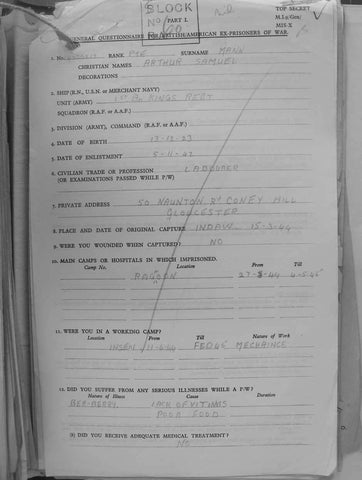 BLOCK
No 1/20
PART I.
TOP SECRET
M.I.9/Gen/
MIS-X
GENERAL QUESTIONNAIRE FOR BRITISH/AMERICAN EX-PRISONERS OF WAR.
1. RANK PTE SURNAME MANN
CHRISTIAN NAMES ARTHUR SAMUEL
DECORATIONS
2. SHIP (R.N., U.S.N. or MERCHANT NAVY)
UNIT (ARMY) 1st Bn KINGS REGT
SQUADRON (R.A.F. or A.A.F.)
3. DIVISION (ARMY), COMMAND (R.A.F. or A.A.F.)
4. DATE OF BIRTH 13-12-23
5. DATE OF ENLISTMENT 5-11-42
6. CIVILIAN TRADE OR PROFESSION LABOURER
(OR EXAMINATIONS PASSED WHILE P/W)
7. PRIVATE ADDRESS 50 NAUNTON Rd CONEY HILL
GLOUCESTER
8. PLACE AND DATE OF ORIGINAL CAPTURE INDAW 15-3-44
9. WERE YOU WOUNDED WHEN CAPTURED? NO
10. MAIN CAMPS OR HOSPITALS IN WHICH IMPRISONED.
Camp No. Location From Till
RAGOON 27-3-44 4-5-45
11. WERE YOU IN A WORKING CAMP?
Location From Till Nature of Work
INSEN 11-6-44 FEB 45 MECHAINCE
12. DID YOU SUFFER FROM ANY SERIOUS ILLNESSES WHILE A P/W?
Nature of Illness Cause Duration
BER-BERRY LACK OF VITIMAS
POOR FOOD
(b) DID YOU RECEIVE ADEQUATE MEDICAL TREATMENT?
NO